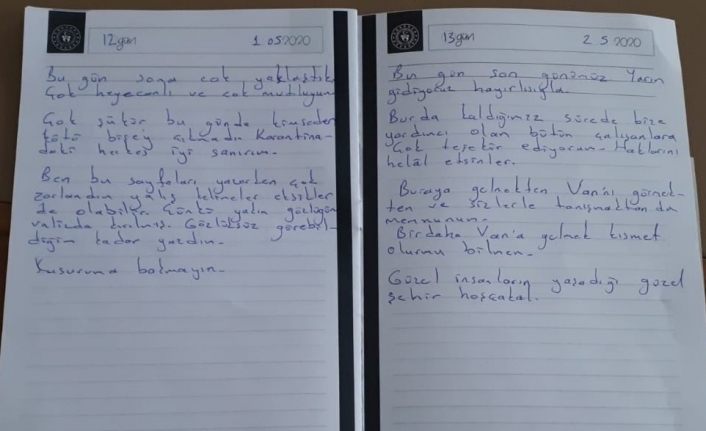 12.gün 1 05 2020
Bu gün sona çok yaklaştık
Çok heyecanlı ve çok mutluyum
Çok şükür bu günde kimseden
kötü bişey çıkmadı Karantina-
daki herkes iyi sanırım.
Ben bu sayfaları yazarken çok
zorlandım yalış kelimeler eksikler
de olabilir. Çünkü yakın gözlüğüm
valizda kırılmış. Gözlüksüz görebil-
diğim kadar yazdım.
Kusuruma bakmayın.
13.gün 2 5 2020
Bu gün son günümüz Yarın
gidiyoruz hayırlısıyla.
Burda kaldığımız sürede bize
yardımcı olan bütün çalışanlara
Çok teşekür ediyorum. Haklarını
helâl etsinler.
Buraya gelmekten Van'ı görmek-
ten ve sizlerle tanışmaktan da
memnunum.
Birdaha Van'a gelmek kısmet
olurmu bilmem.
Güzel insanların yaşadığı güzel
şehir hoşçakal.